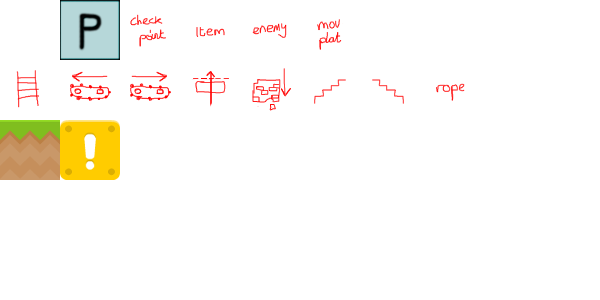 P
check
point
Item
enemy
mov
plat
rope
!